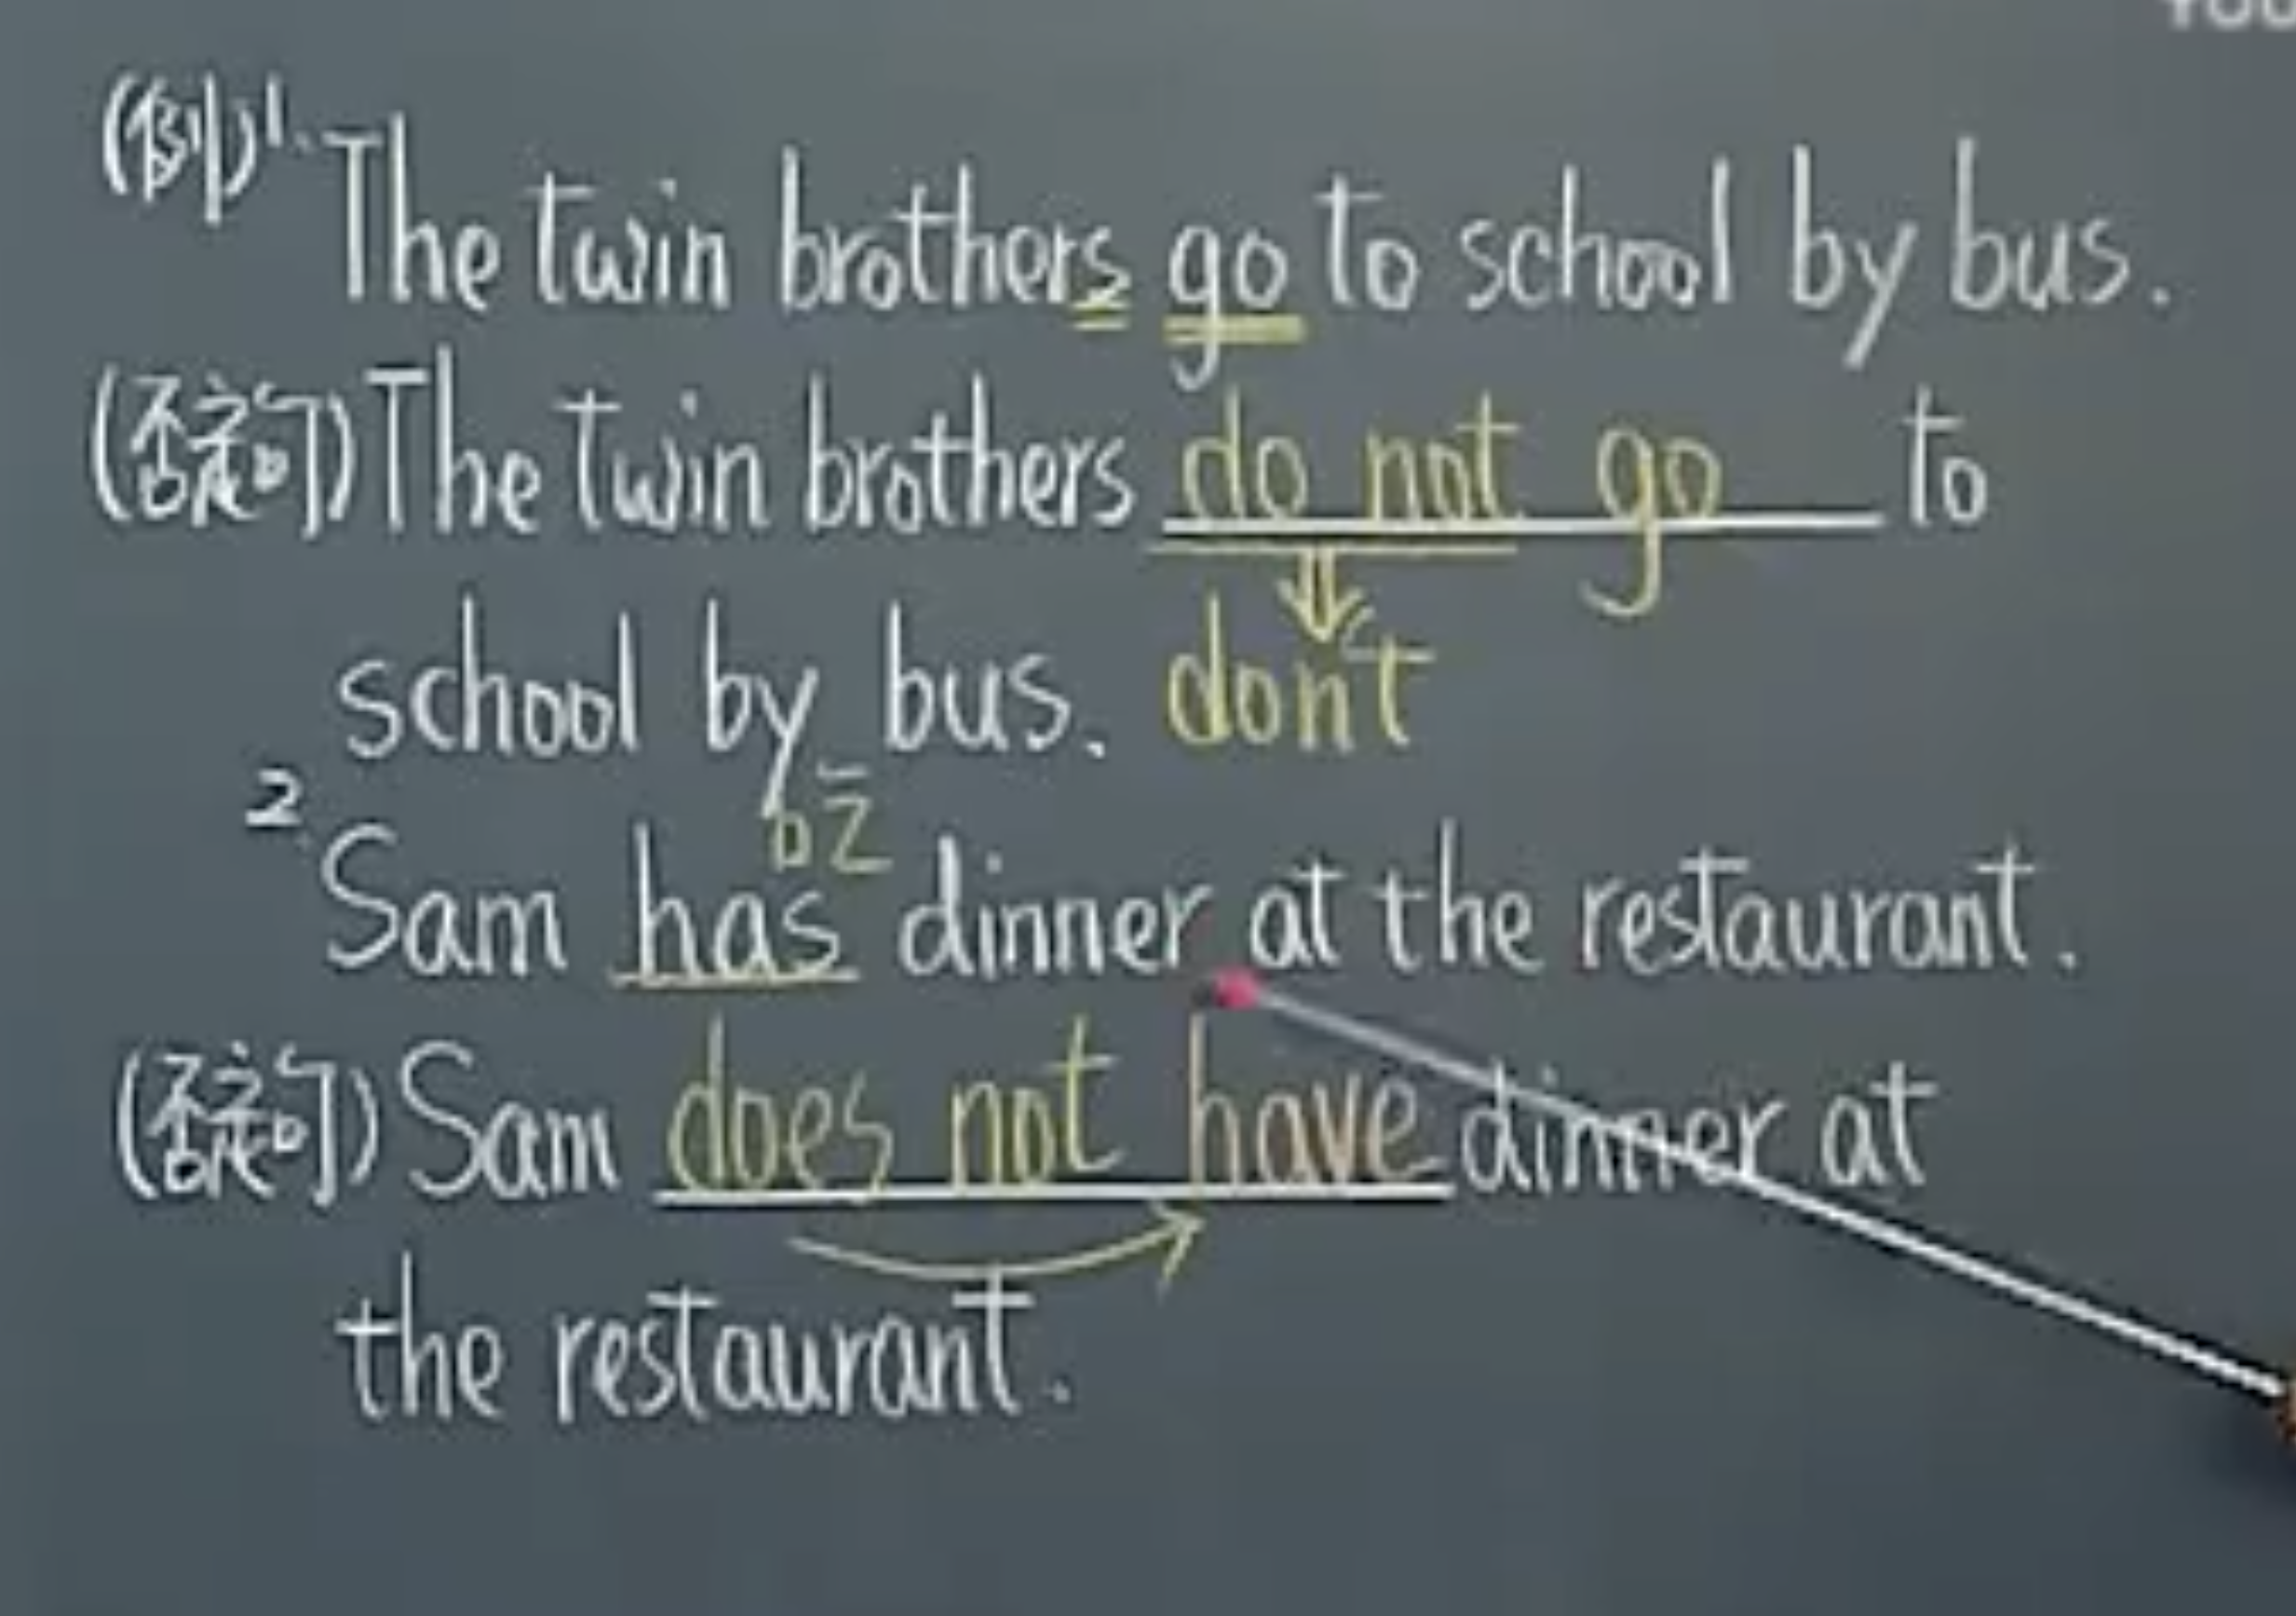 (例)1. The twin brothers go to school by bus.
(否定句) The twin brothers do not go to
school by bus. don't
吃
2. Sam has dinner at the restaurant.
(否定句) Sam does not have dinner at
the restaurant.